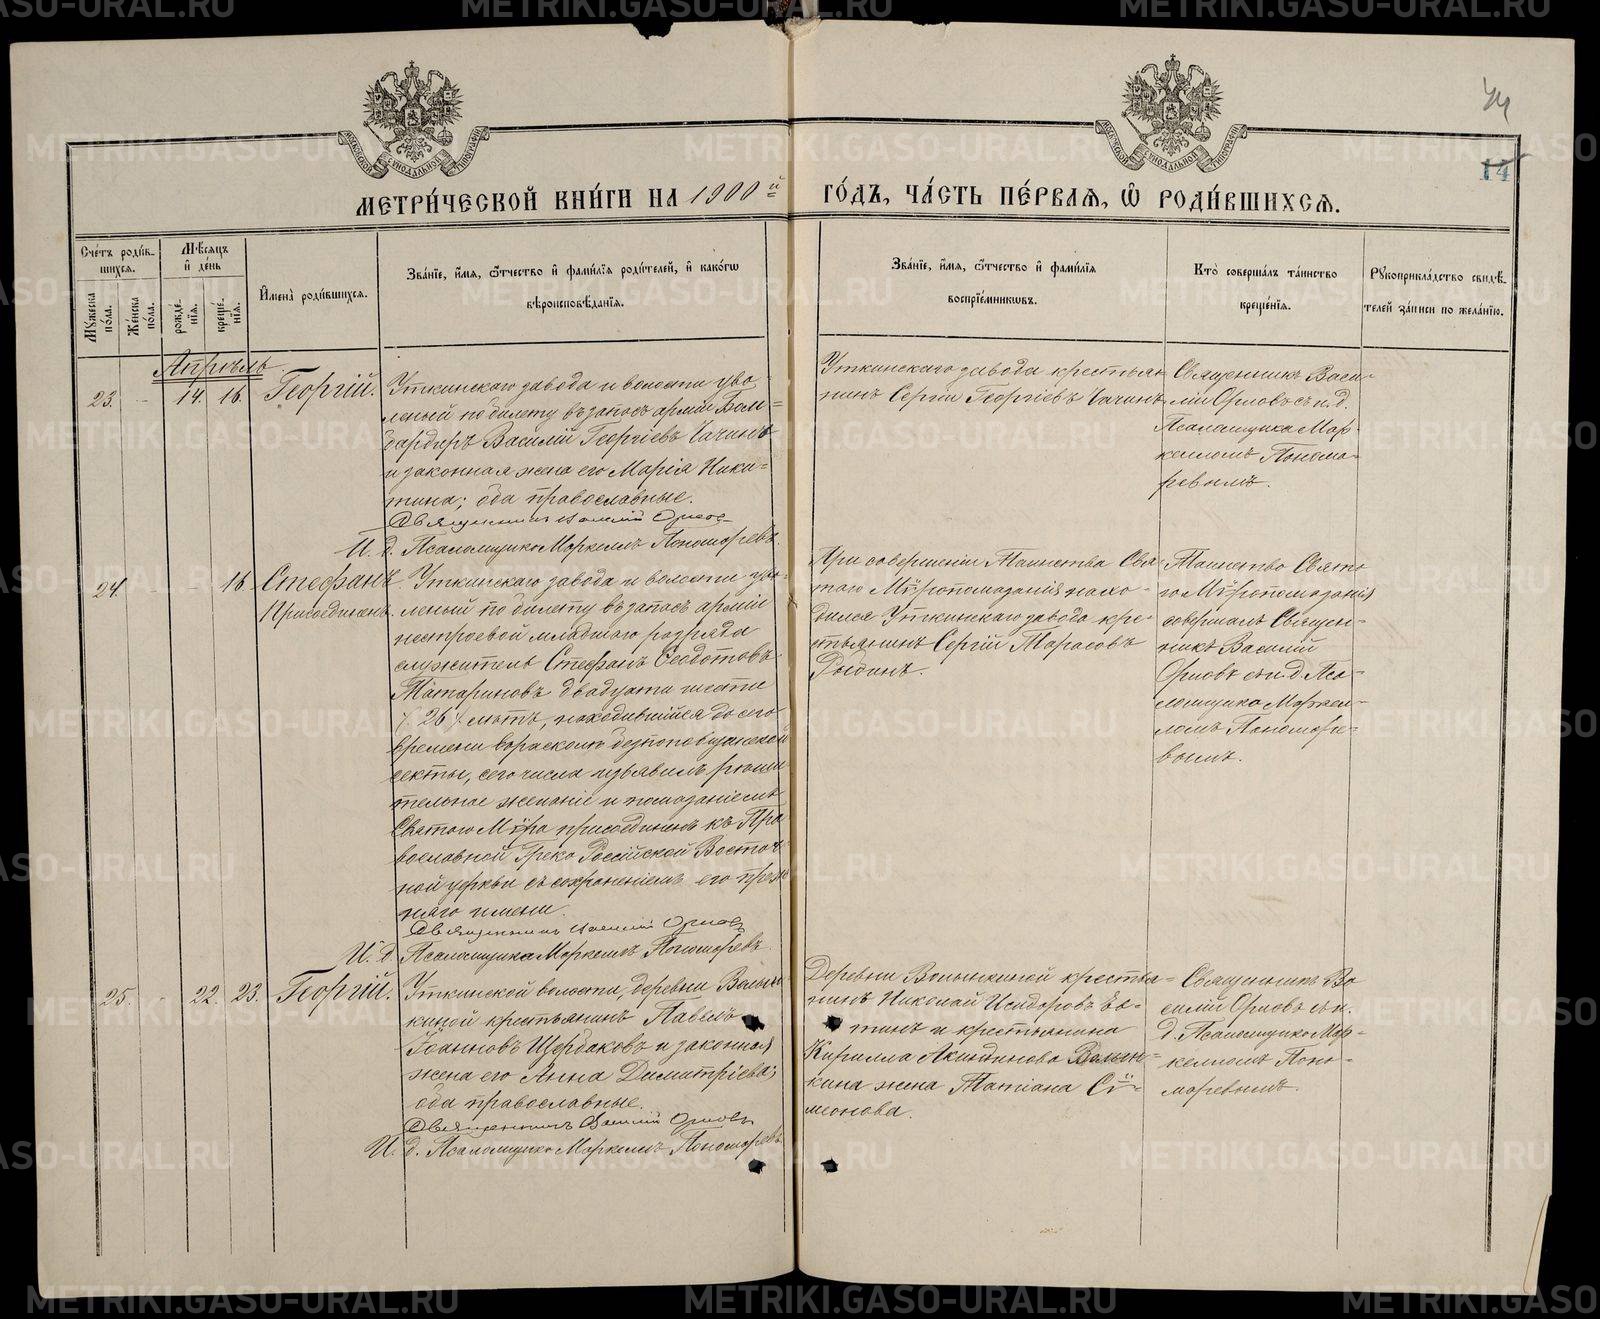 МЕТРИ́ЧЕСКОЙ КНИ́ГИ НА 1900й ГО́ДЪ, ЧА́СТЬ ПЕ́РВАЯ, Ѽ РОДИ́ВШИХСЯ.
14
МОСКОВСКОЙ СѴНОДАЛЬНОЙ ТИПОГРАФІИ
МОСКОВСКОЙ СѴНОДАЛЬНОЙ ТИПОГРАФІИ
Сче́тъ роди́в-
шихся.
Мꙋ́жеска по́ла.
Же́нска по́ла.
Мѣ́сяцъ
и҆ де́нь
рожде́-
нїя.
креще́-
нїя.
И҆мена̀ роди́вшихся.
Зва́нїе, и҆́мя, ѻ҆́тчество и҆ фами́лїя роди́телей, и҆ како́гѡ
вѣроисповѣ́данїя.
Зва́нїе, и҆́мя, ѻ҆́тчество и҆ фами́лїя
воспрїе́мникѡвъ.
Кто̀ соверша́лъ та́инство
креще́нїя.
Рꙋкоприкла́дство свидѣ́-
телей за́писи по жела́нїю.
Апрѣль
23. - 14. 16. Георгій.
Уткинскаго завода и волости уво-
леный по билету въ запасъ арміи Бом-
бардиръ Василій Георгіевъ Чачинъ
и законная жена его Марія Ники-
тина; оба православные.
Священникъ Василій Орлов
И. д. Псаломщика Маркеллъ Пономаревъ.
Уткинскаго завода крестьян
нинъ Сергій Георгіевъ Чачинъ.
Священникъ Васи-
лій Орловъ съ и. д.
Псаломщика Мар-
келломъ Понома-
ревымъ.
24. - - 16. Стефанъ
Присоединенъ.
Уткинскаго завода и волости уво-
леный по билету въ запасъ арміи
нестроевой младшаго разряда
служитель Стефанъ Ѳеодотовъ
Татариновъ двадцати шести
/26/ лѣтъ, находившійся до сего
времени въ расколѣ безпоповщинской
секты, сего числа изъявилъ рѣши
тельное желаніе и помазаніемъ
Святаго Мѵра присоединенъ къ Пра
вославной Греко Россійской Восточ
ной церкви съ сохраненіемъ его преж
няго имени.
Священникъ Василій Орлов
И. д. Псаломщика Маркеллъ Пономаревъ
При совершеніи Таинства Свя-
таго Мѵропомазанія нахо-
дился Уткинскаго завода кре-
стьянинъ Сергій Тарасовъ
Таинство Свята-
го Мѵропомазанія
совершалъ Священ-
никъ Василій
Орловъ съ и. д. Пса-
ломщика Маркел-
ломъ Пономаре-
вымъ.
25. - 22. 23. Георгій.
Уткинской волости, деревни Волын
киной крестьянинъ Павелъ
Іоанновъ Щербаковъ и законная
жена его Анна Димитріева;
оба православные.
Священникъ Василій Орловъ
И. д. Псаломщика Маркеллъ Пономаревъ
Деревни Волынкиной крестья-
нинъ Николай Исидоровъ
и крестьянина
Кирилла Акиндинова Волын-
кина жена Татіана Сѵ-
меонова.
Священникъ Ва
силій Орловъ съ и.
д. Псаломщика Мар-
келломъ Поно-
маревымъ.
METRIKI.GASO-URAL.RU